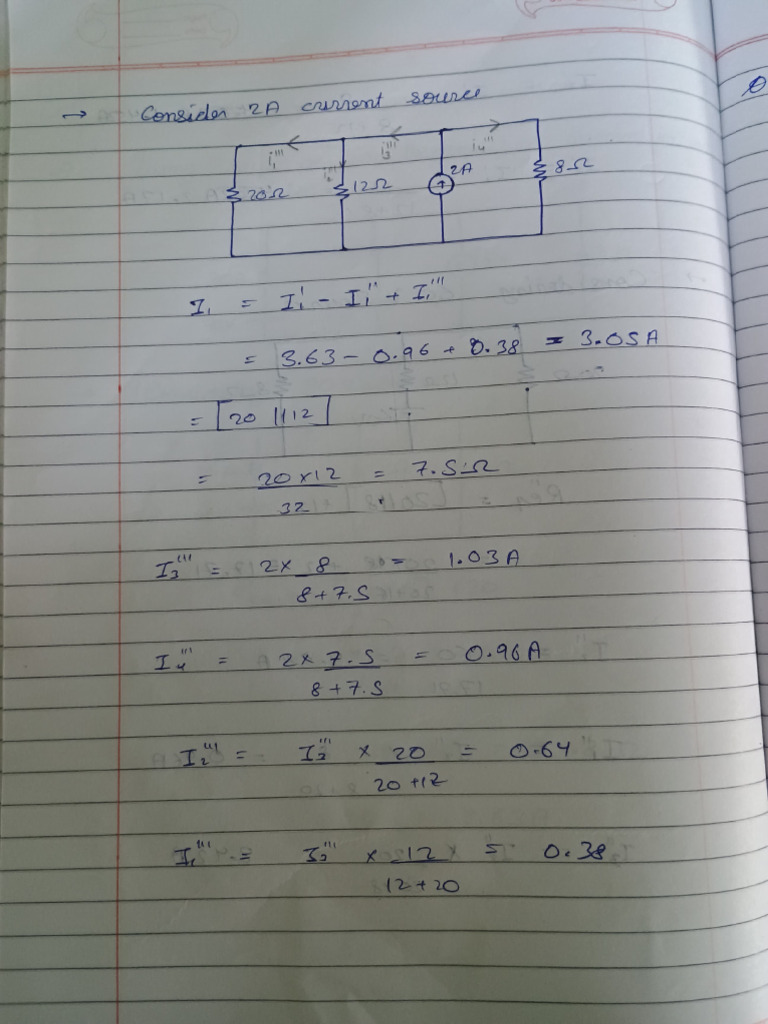 → Consider 2A current source
i₁''' i₃''' i₄'''
i₂'''
20Ω 12Ω 2A 8Ω
I₁ = I₁' - I₁'' + I₁'''
= 3.63 - 0.96 + 0.38 = 3.05A
= [20 || 12]
= 20 × 12 / 32 = 7.5Ω
I₃''' = 2 × 8 / 8 + 7.5 = 1.03A
I₄''' = 2 × 7.5 / 8 + 7.5 = 0.96A
I₂''' = I₃''' × 20 / 20 + 12 = 0.64
I₁''' = I₃''' × 12 / 12 + 20 = 0.38